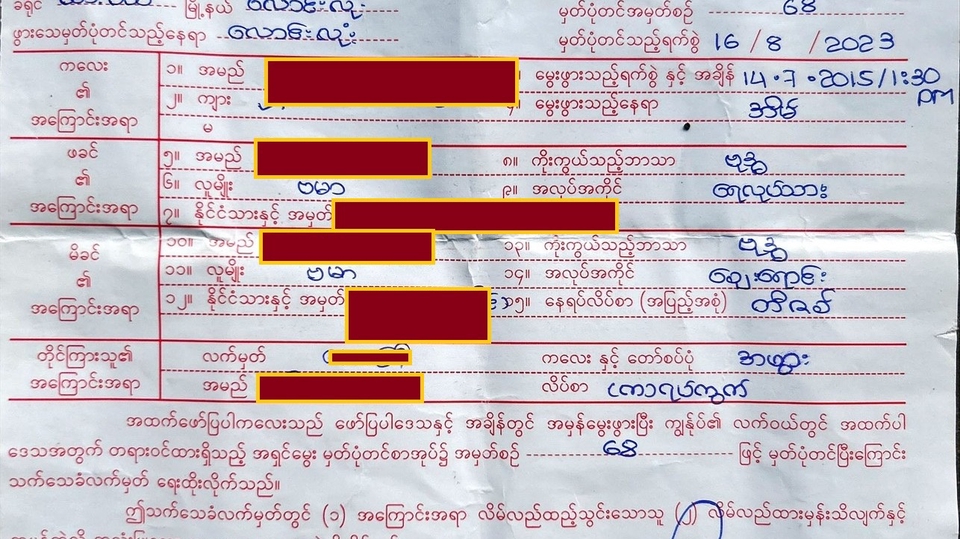 ခရိုင် မြို့နယ် လောင်းလုံး 68
ဖွားသေမှတ်ပုံတင်သည့်နေရာ လောင်းလုံး မှတ်ပုံတင်သည့်ရက်စွဲ 16 / 8 / 2023
ကလေး ၁။ အမည် မွေးဖွားသည့်ရက်စွဲ နှင့် အချိန် 14.7.2015/1:30 pm
၏ ၂။ ကျား ၄။ မွေးဖွားသည့်နေရာ အိမ်
အကြောင်းအရာ မ
ဖခင် ၅။ အမည် ၈။ ကိုးကွယ်သည့်ဘာသာ ဗုဒ္ဓ
၏ ၆။ လူမျိုး ဗမာ ၉။ အလုပ်အကိုင် ရေလုပ်သား
အကြောင်းအရာ ၇။ နိုင်ငံသားနှင့် အမှတ်
မိခင် ၁၀။ အမည် ၁၃။ ကိုးကွယ်သည့်ဘာသာ ဗုဒ္ဓ
၏ ၁၁။ လူမျိုး ဗမာ ၁၄။ အလုပ်အကိုင် ဈေးရောင်း
အကြောင်းအရာ ၁၂။ နိုင်ငံသားနှင့် အမှတ် ၁၅။ နေရပ်လိပ်စာ (အပြည့်အစုံ) တီဇစ်
တိုင်ကြားသူ၏ လက်မှတ် ကလေး နှင့် တော်စပ်ပုံ အဖွား
အကြောင်းအရာ အမည် လိပ်စာ ကောရပ်ကွက်
အထက်ဖော်ပြပါကလေးသည် ဖော်ပြပါဒေသနှင့် အချိန်တွင် အမှန်မွေးဖွားပြီး ကျွန်ုပ်၏ လက်ဝယ်တွင် အထက်ပါ
ဒေသအတွက် တရားဝင်ထားရှိသည့် အရှင်မွေး မှတ်ပုံတင်စာအုပ်၌ အမှတ်စဉ် 68 ဖြင့် မှတ်ပုံတင်ပြီးကြောင်း
သက်သေခံလက်မှတ် ရေးထိုးလိုက်သည်။
ဤသက်သေခံလက်မှတ်တွင် (၁) အကြောင်းအရာ လိမ်လည်ထည့်သွင်းသောသူ (၂) လိမ်လည်ထားမှန်းသိလျက်နှင့်